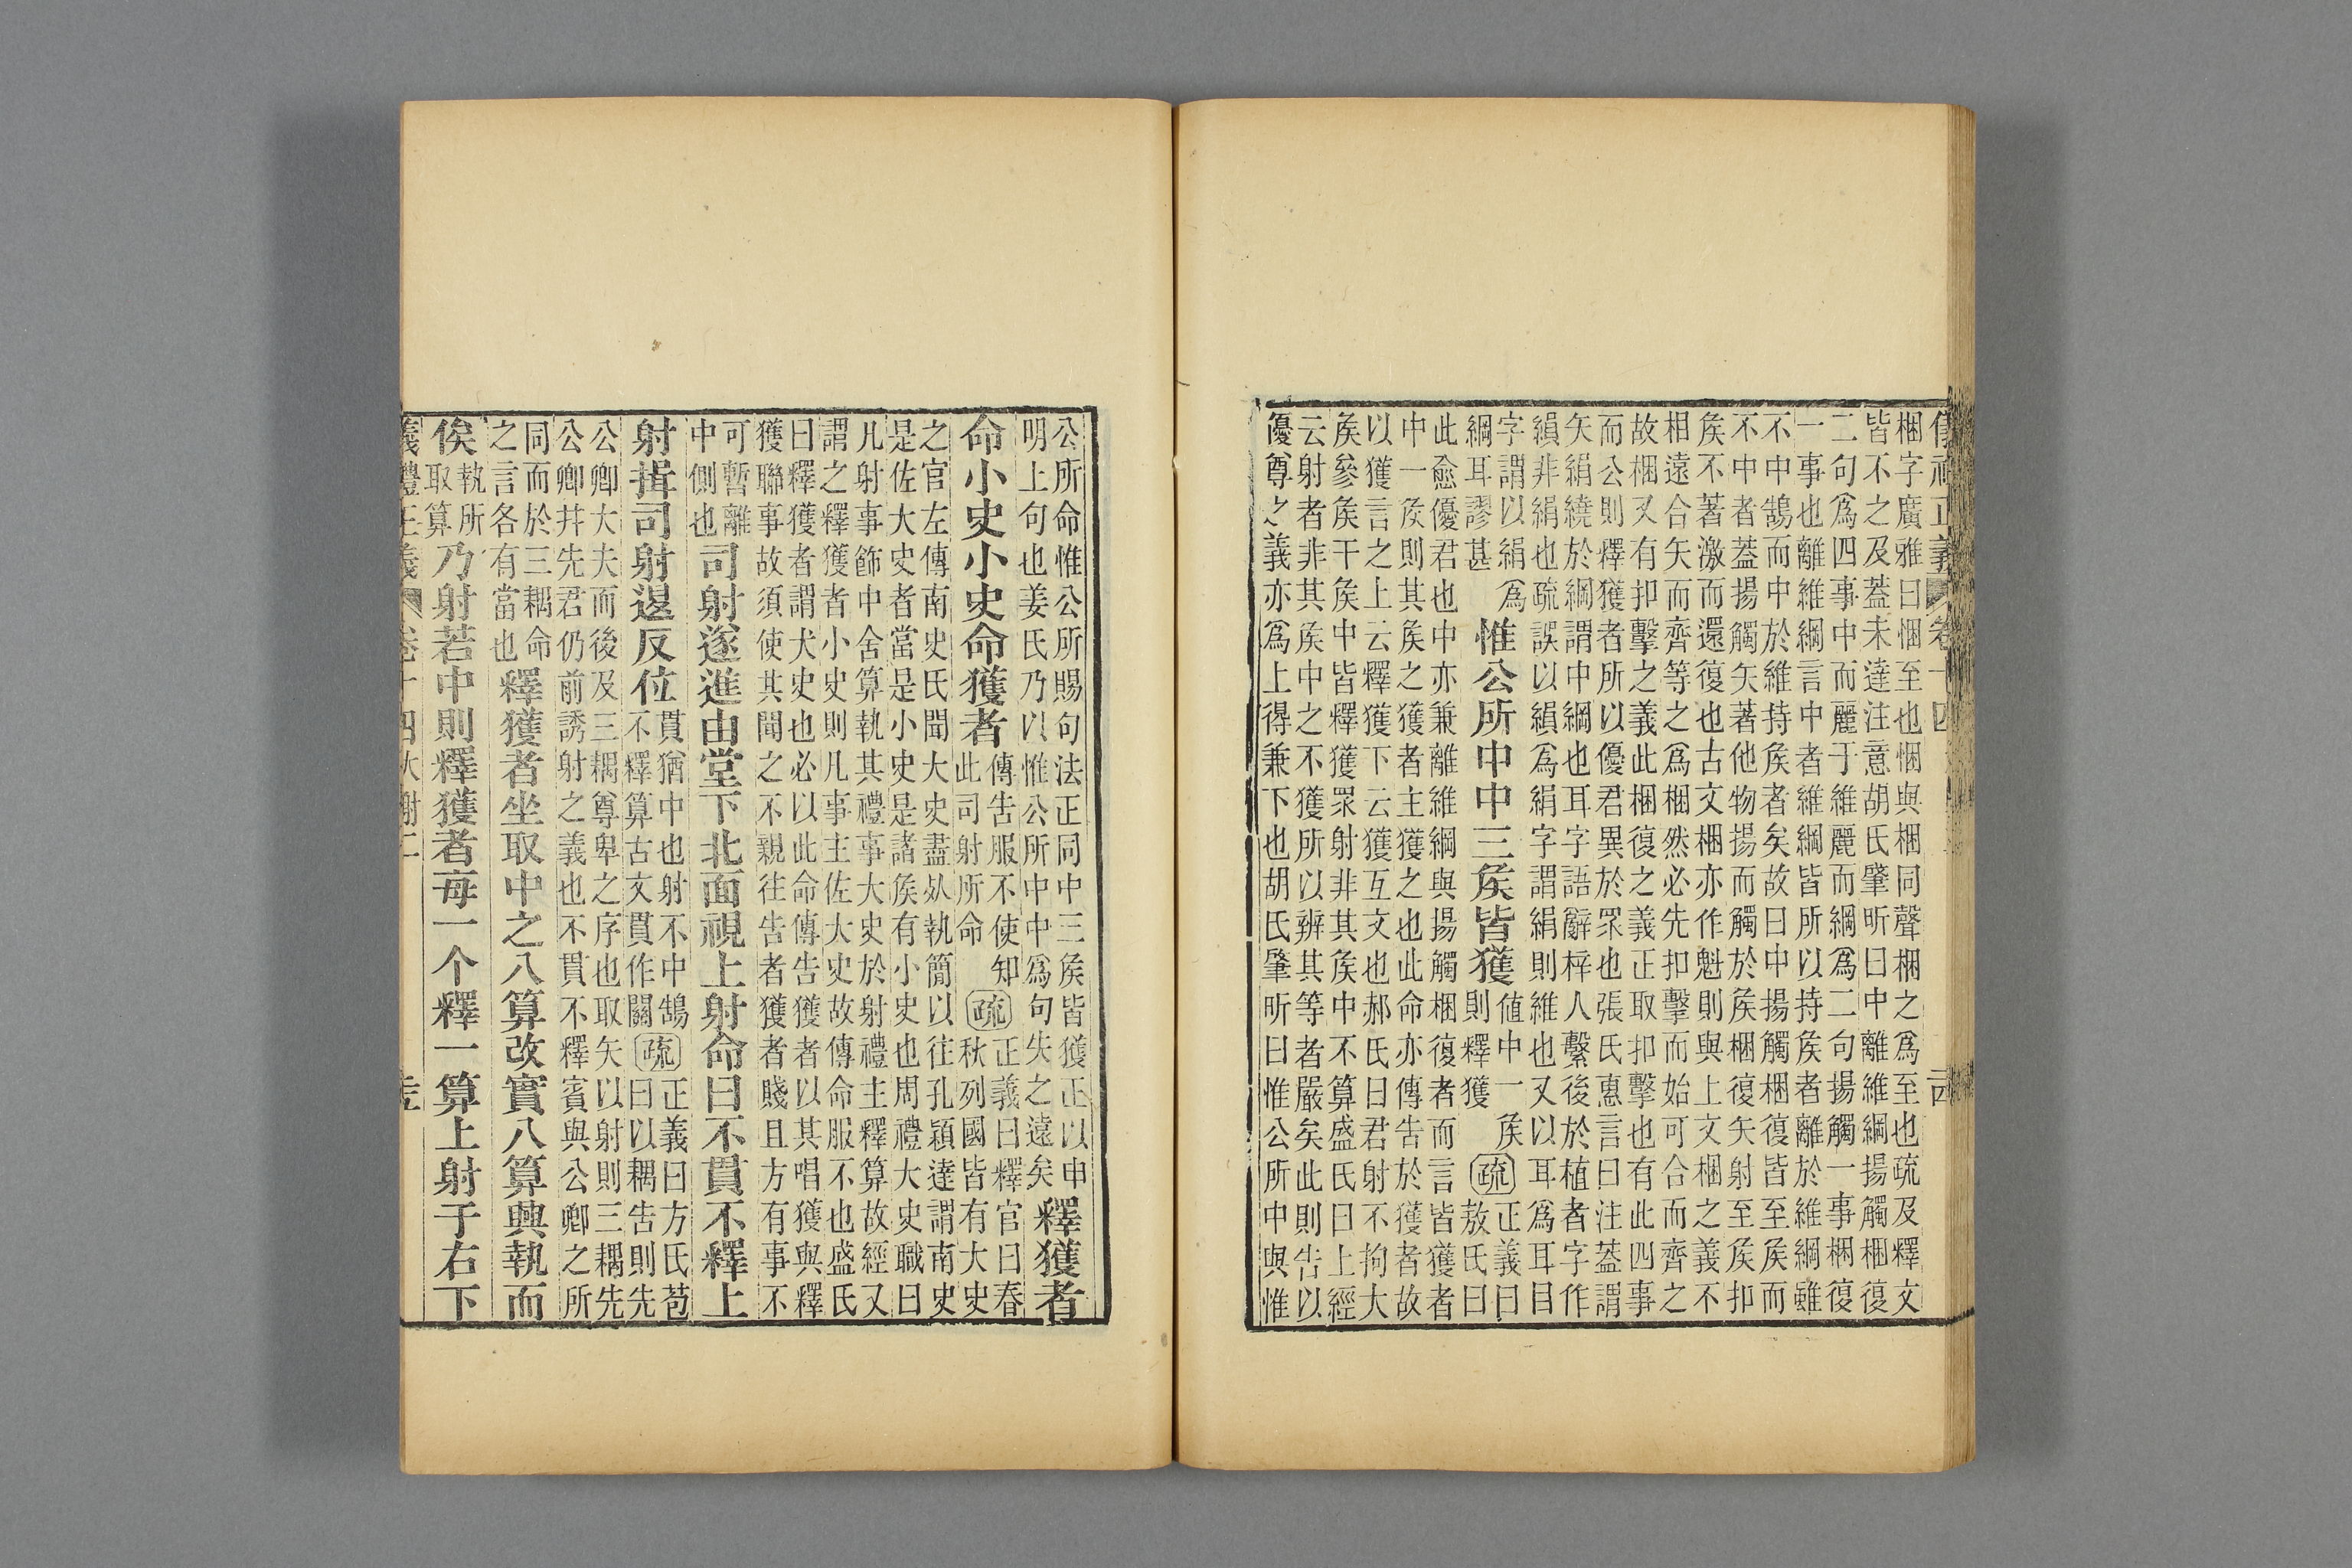 儀禮正義 卷十四
梱字廣雅曰悃至也悃與梱同聲梱之爲至也疏及釋文
皆不之及蓋未達注意胡氏肇昕曰中離維綱揚觸梱復
二句爲四事中而麗于維麗而綱爲二句揚觸一事梱復
一事也離維綱言中者維綱皆所以持矦者離於維綱雖
不中鵠而中於維持矦者矣故曰中揚觸梱復皆至矦而
不中者蓋揚觸矢著他物揚而觸於矦梱復矢射至矦扣
矦不著激而還復也古文梱亦作魁則與上文梱之義不
相遠合矢而齊等之爲梱然必先扣擊而始可合而齊之
故梱又有扣擊之義此梱復之義正取扣擊也有此四事
而公則釋獲者所以優君異於眾也張氏惠言曰注蓋謂
矢絹繞於綱謂中綱也耳字語辭梓人繫後於植者字作
縜非絹也疏誤以縜爲絹字謂絹則維也又以耳爲耳目
字謂以絹爲
綱耳謬甚
惟公所中中三矦皆獲
值中一矦
則釋獲
疏
正義曰
敖氏曰
此愈優君也中亦兼離維綱與揚觸梱復者而言皆獲者
中一矦則其矦之獲者主獲之也此命亦傳告於獲者故
以獲言之上云釋獲下云獲互文也郝氏曰君射不拘大
矦參矦干矦中皆釋獲眾射非其矦中不算盛氏曰上經
云射者非其矦中之不獲所以辨其等者嚴矣此則告以
優尊之義亦爲上得兼下也胡氏肇昕曰惟公所中與惟
公所命惟公所賜句法正同中三矦皆獲正以申
明上句也姜氏乃以惟公所中中爲句失之遠矣
釋獲者
命小史小史命獲者
傳告服不使知
此司射所命
疏
正義曰釋官曰春
秋列國皆有大史
之官左傳南史氏聞大史盡死執簡以往孔穎達謂南史
是佐大史者當是小史是諸矦有小史也周禮大史職曰
凡射事飾中舍算執其禮事大史於射禮主釋算故經又
謂之釋獲者小史則凡事主佐大史故傳命服不也盛氏
曰釋獲者謂大史也必以此命傳告獲者以其唱獲與釋
獲聯事故須使其聞之不親往告者獲者賤且方有事不
可暫離
中側也
司射遂進由堂下北面視上射命曰不貫不釋上
射揖司射退反位
貫猶中也射不中鵠
不釋算古文貫作關
疏
正義曰方氏苞
曰以耦告則先
公卿大夫而後及三耦尊卑之序也取矢以射則三耦先
公卿并先君仍前誘射之義也不貫不釋賓與公卿之所
同而於三耦命
之言各有當也
釋獲者坐取中之八算改實八算興執而
俟
執所
取算
乃射若中則釋獲者每一个釋一算上射于右下
義禮正義 卷十四大射二